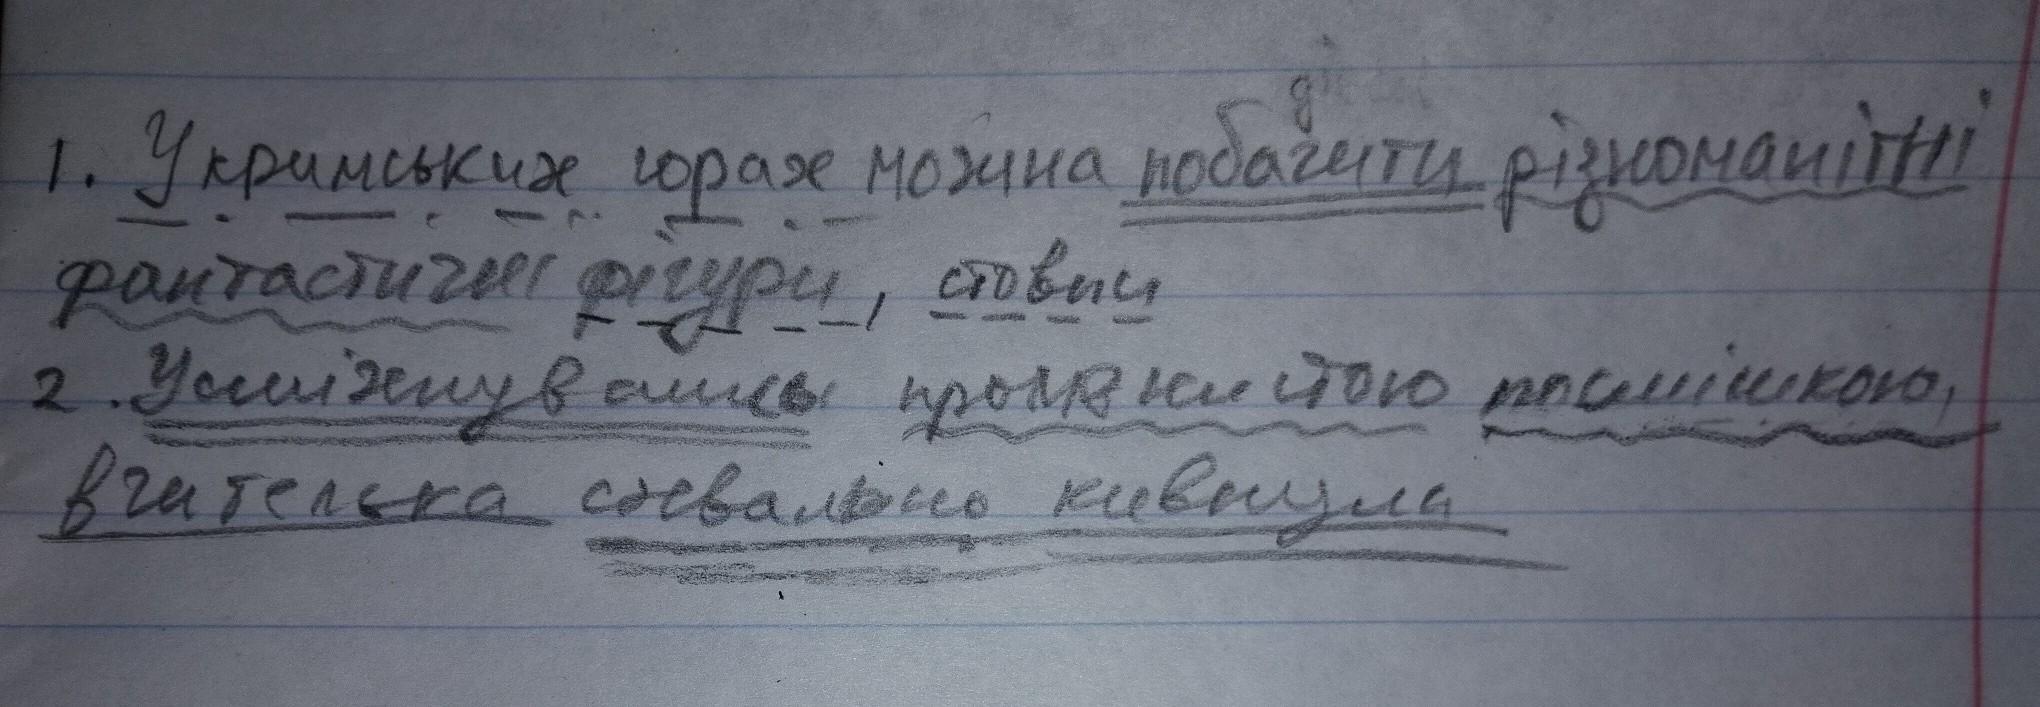 1. У кримських горах можна побачити різноманітні
фантастичні фігури, стовпи
2. Усміхнувшись променистою посмішкою,
вчителька схвально кивнула